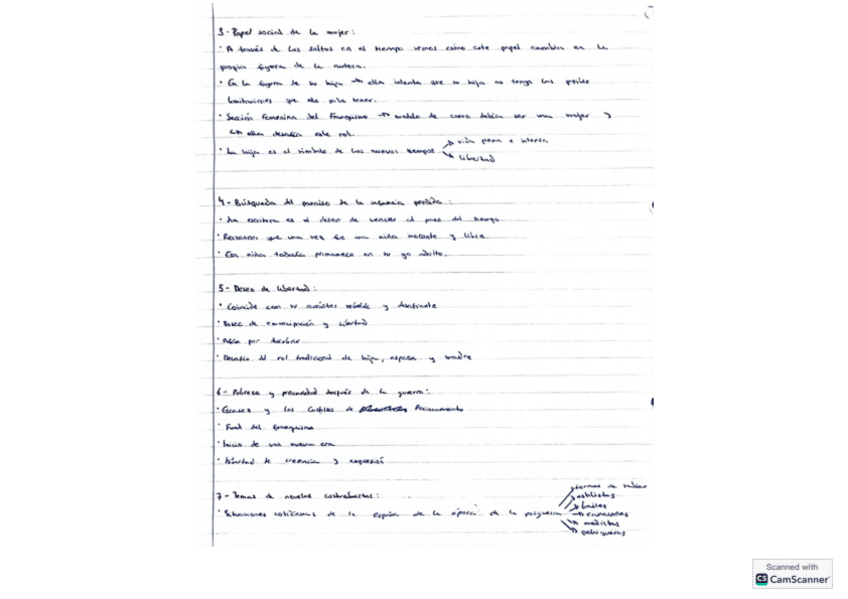 3- Papel social de la mujer:
· A través de los saltos en el tiempo vemos cómo este papel cambia en la
propia figura de la autora.
· En la figura de su hija → ella intenta que su hija no tenga las
limitaciones que ella pudo tener.
· Sección Femenina del Franquismo → modelo de como debía ser una mujer y
↳ ella desafía este rol.
· La hija es el símbolo de los nuevos tiempos → vida plena e intensa
→ libertad
4- Búsqueda del paraíso de la infancia perdida:
· La escritura es el deseo de vencer al paso del tiempo.
· Reconoce que una vez fue una niña inocente y libre.
· Esa niña todavía permanece en su yo adulto.
5- Deseo de libertad:
· Coincide con su carácter rebelde y desafiante
· Deseo de emancipación y libertad
· Afán por descubrir
· Desafío del rol tradicional de hija, esposa y madre
6- Pobreza y precariedad después de la guerra:
· Escasez y las Cartillas de Racionamiento
· Final del franquismo
· Inicio de una nueva era
· Libertad de creencia y expresión
7- Temas de novelas costumbristas:
· Situaciones cotidianas de la España de la época de la posguerra
→ formas de hablar
→ estilistas
→ bailes
→ canciones
→ modistas
→ peluqueras
Scanned with
CS CamScanner